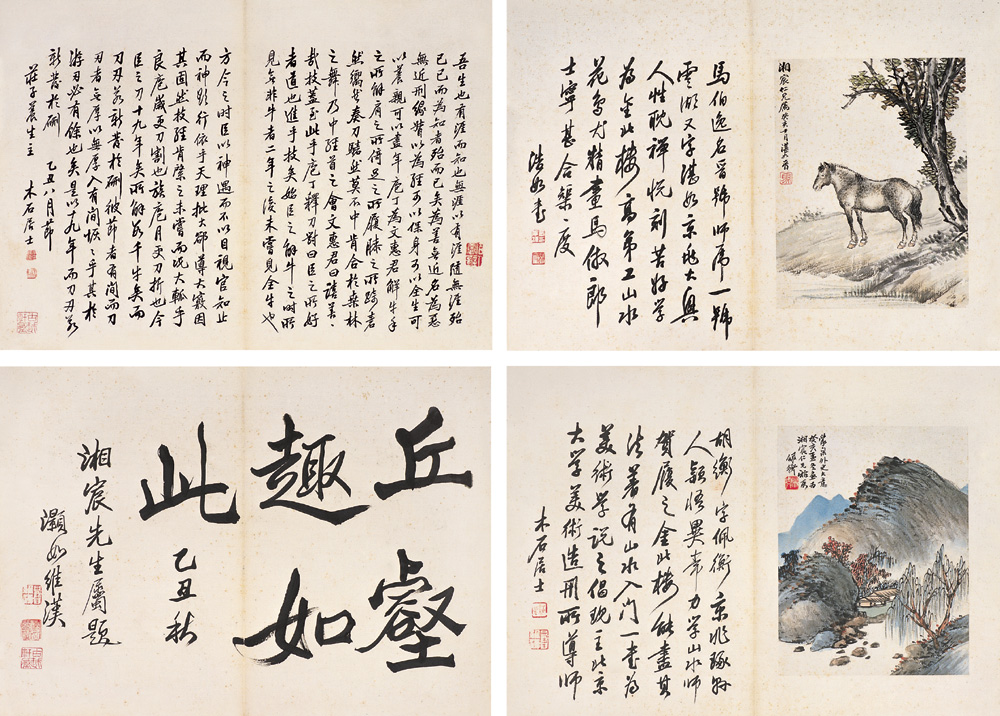 吾生也有涯而知也無涯以有涯隨無涯殆
已已而為知者殆而已矣為善無近名為惡
無近刑緣督以為經可以保身可以全生可
以養親可以盡年庖丁為文惠君解牛手
之所觸肩之所倚足之所履膝之所踦砉
然嚮然奏刀騞然莫不中音合於桑林
之舞乃中經首之會文惠君曰譆善
哉技蓋至此乎庖丁釋刀對曰臣之所好
者道也進乎技矣始臣之解牛之時所
見無非牛者三年之後未嘗見全牛也
方今之時臣以神遇而不以目視官知止
而神欲行依乎天理批大郤導大窾因
其固然技經肯綮之未嘗而況大軱乎
良庖歲更刀割也族庖月更刀折也今
臣之刀十九年矣所解數千牛矣而
刀刃若新發於硎彼節者有間而刀
刃者無厚以無厚入有間恢恢乎其於
游刃必有餘地矣是以十九年而刀刃若
新發於硎 乙丑八月節
莊子養生主 木石居士
湘宸仁兄屬癸亥十月
馬伯逸名晉號師虎一號
雲湖又字湛如京兆大興
人性耽禪悅刻苦好學
為金北樓高第工山水
花鳥尤精畫馬倣郎
士寧甚合榘度
浩如書
丘壑
趣如
此
乙丑秋
湘宸先生屬題
灝如維漢
癸亥
湘宸仁兄
佩衡
胡衡字佩衡京兆涿縣
人穎悟異常力學山水師
賀履之金北樓能盡其
法著有山水入門一書為
美術學說之倡現主北京
大學美術造形所導師
木石居士